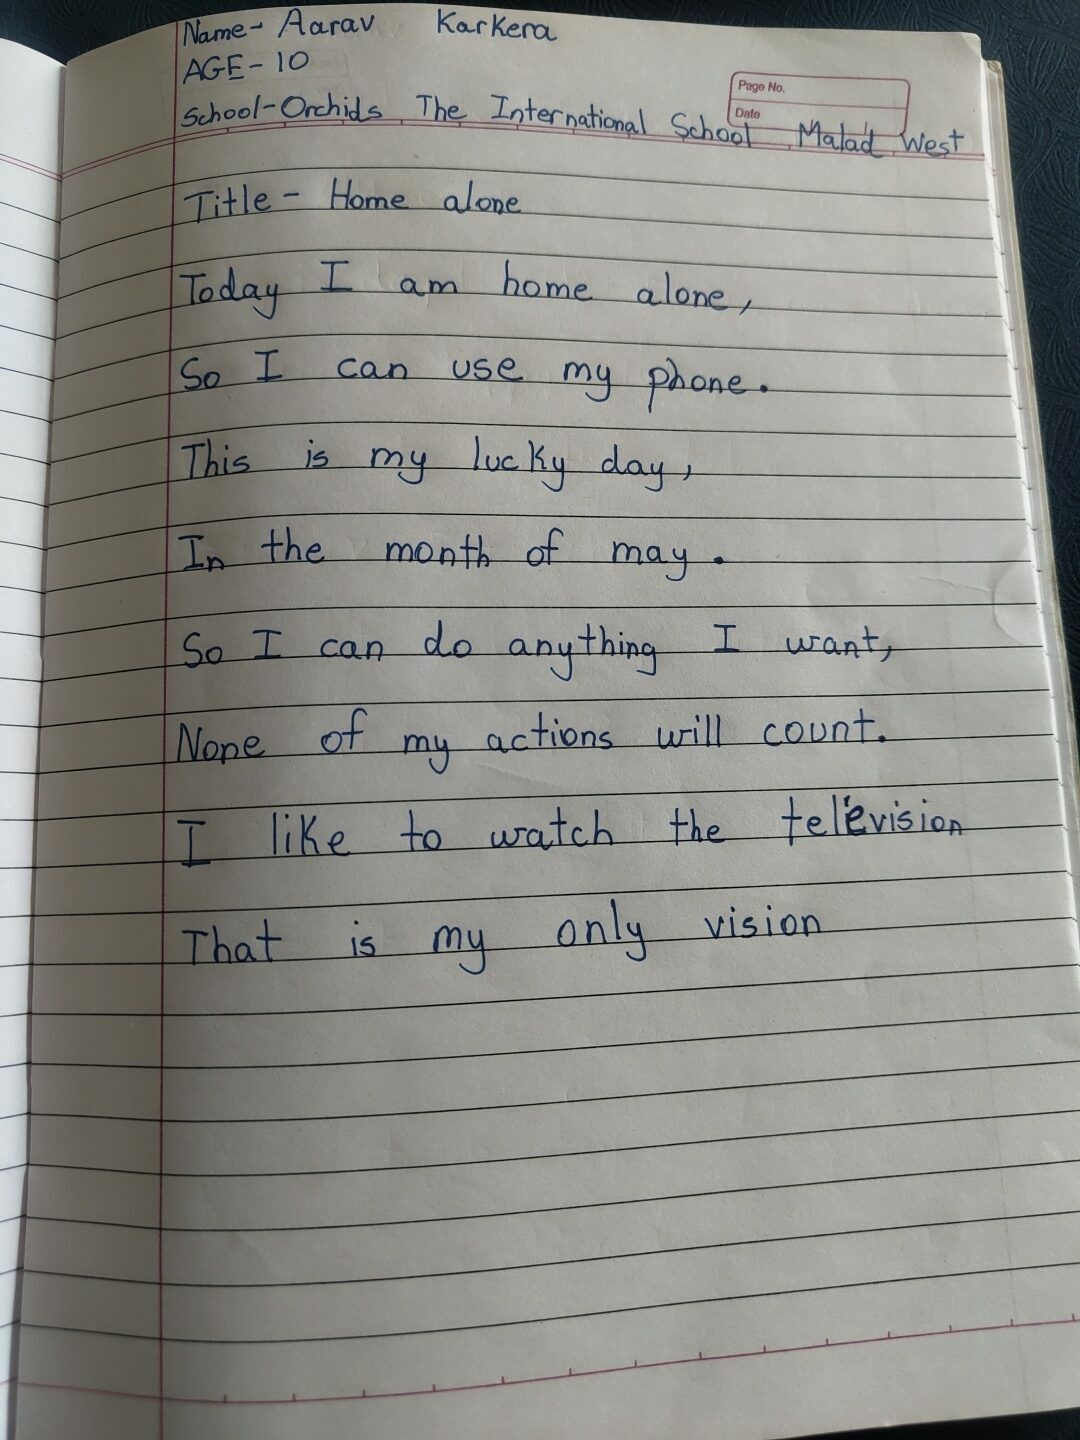 Name- Aarav Karkera
AGE- 10
Page No.
Date
School-Orchids The International School Malad West
Title- Home alone
Today I am home alone,
So I can use my phone.
This is my lucky day,
In the month of may.
So I can do anything I want,
None of my actions will count.
I like to watch the television
That is my only vision